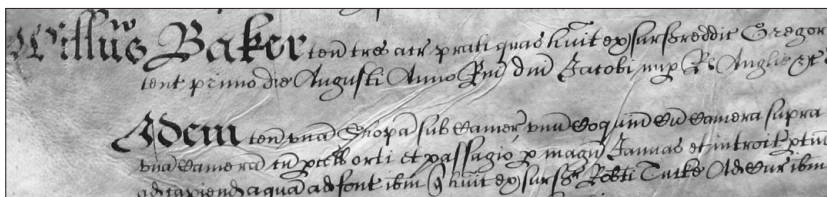 Willus Baker ten tres acr prati quas huit ex sursredditͤ Gregor
tent primo die Augusti Anno Rni dni Jacobi nup Rs Anglie &c
Idem ten una Shopa sub Camer, unu Coquin cu Camera supra
una Camera cu pcell orti et passagio p magn Januas et introit
ad capiend aqua ad font ibm q huit ex sursr Robti Tuike Ad Cur ibm